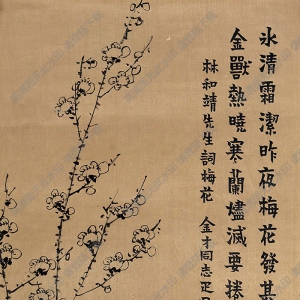 冰清霜潔昨夜梅花發甚
金獸熱曉寒蘭燼滅要捲
林和靖先生詞梅花
金才同志正